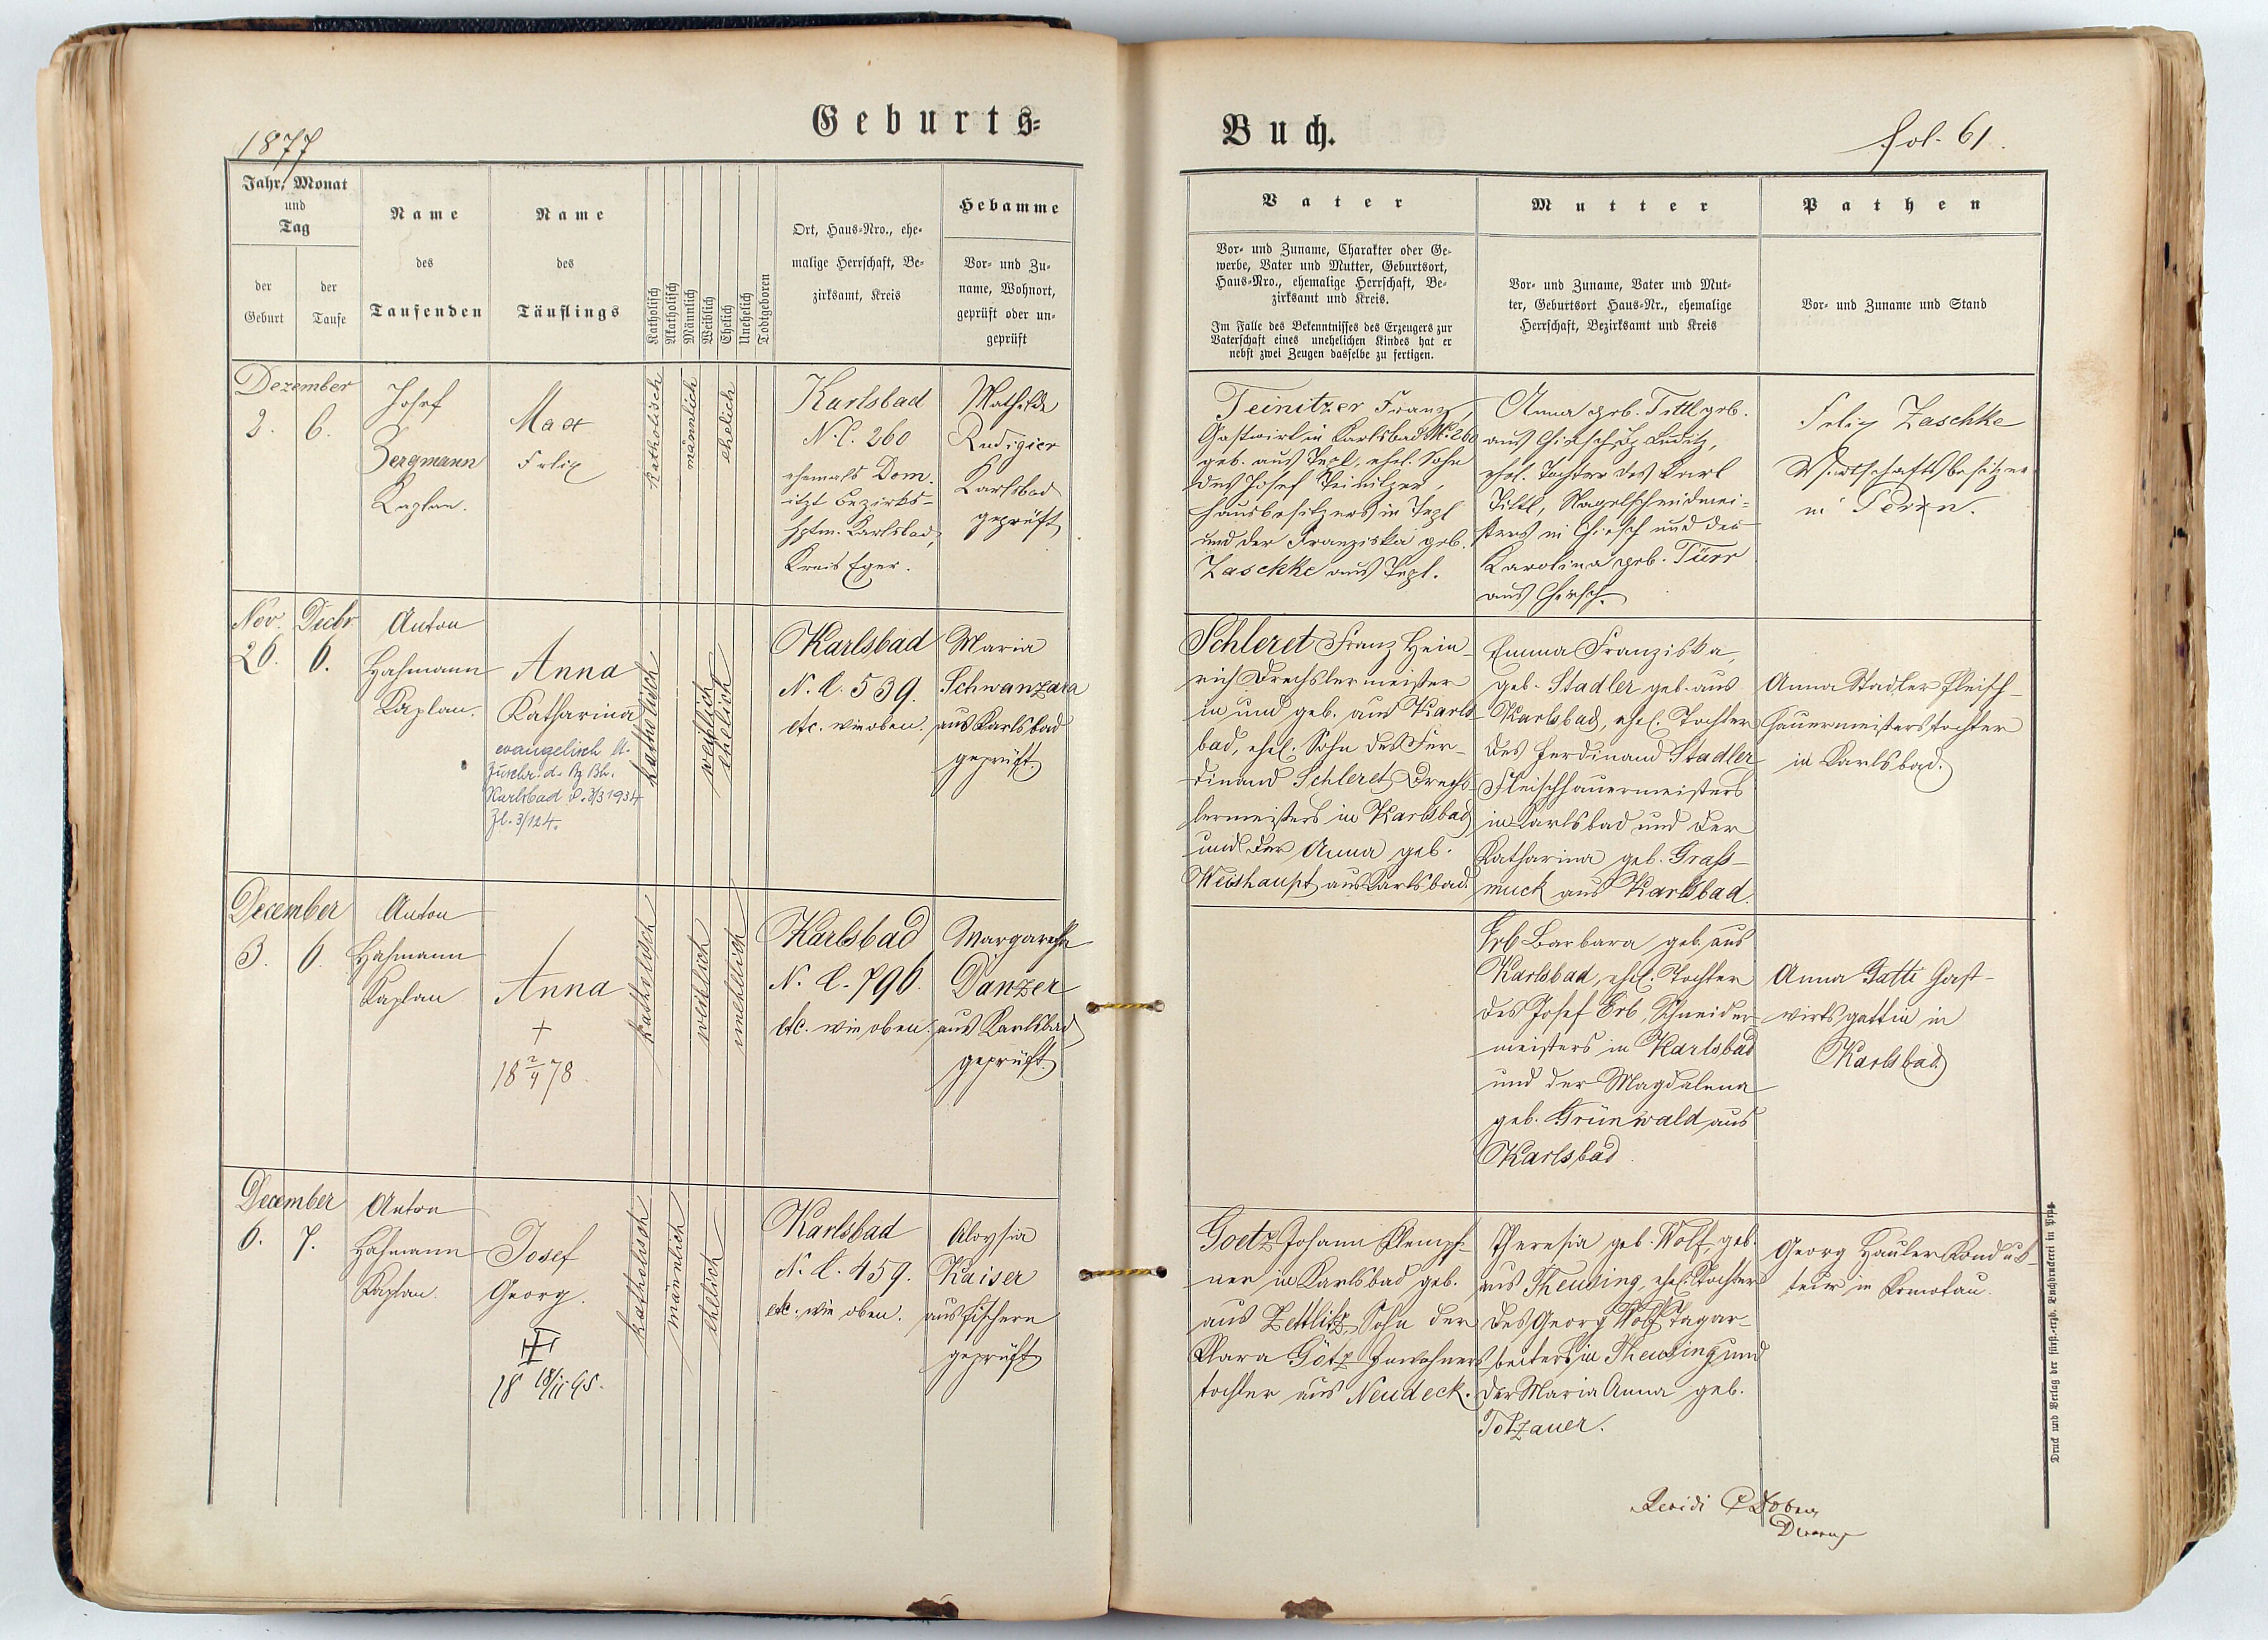 Geburts=
Buch.
1877
fol. 61.
Jahr, Monat
und
Tag
der
Geburt
der
Taufe
Name
des
Taufenden
Name
des
Täuflings
Katholisch
Akatholisch
Männlich
Weiblich
Ehelich
Unehelich
Todtgeboren
Ort, Haus=Nro., ehe=
malige Herrschaft, Be=
zirksamt, Kreis
Hebamme
Vor= und Zu=
name, Wohnort,
geprüft oder un=
geprüft
Vater
Vor= und Zuname, Charakter oder Ge=
werbe, Vater und Mutter, Geburtsort,
Haus=Nro., ehemalige Herrschaft, Be=
zirksamt und Kreis.
Im Falle des Bekenntnisses des Erzeugers zur
Vaterschaft eines unehelichen Kindes hat er
nebst zwei Zeugen dasselbe zu fertigen.
Mutter
Vor= und Zuname, Vater und Mut=
ter, Geburtsort Haus=Nr., ehemalige
Herrschaft, Bezirksamt und Kreis
Pathen
Vor= und Zuname und Stand
Dezember
2.
6.
Josef
Bergmann
Kaplan.
Max
Felix
katholisch
männlich
ehelich
Karlsbad
N.C. 260
ehemals Dom.
itzt Bezirks-
hptm. Karlsbad,
Kreis Eger.
Mathilde
Rudigier
Karlsbad
geprüft
Teinitzer Franz,
Gastwirt in Karlsbad N. 260
geb. aus Tepl, ehel. Sohn
des Josef Teinitzer,
Hausbesitzers in Tepl
und der Franziska geb.
Zaschke aus Tepl.
Anna geb. Tittl geb.
aus Chiesch Bz Luditz,
ehel. Tochter des Karl
Tittl, Nagelschmidmei-
sters in Chiesch und der
Karolina geb. Türr
aus Chiesch.
Felix Zaschke
Wirtschaftsbesitzer
in
Nov.
26.
Decbr.
6.
Anton
Hahmann
Kaplan.
Anna
Katharina
evangelisch lt.
Zuschr. d. Bz Bh.
Karlsbad v. 3/3 1934
Zl. 3/124.
katholisch
weiblich
ehelich
Karlsbad
N. C. 539.
etc. wie oben.
Maria
Schwanzara
aus Karlsbad
geprüft.
Schleret Franz Hein-
rich Drechslermeister
in und geb. aus Karls-
bad, ehel. Sohn des Fer-
dinand Schleret Drechs-
lermeisters in Karlsbad
und der Anna geb.
Weishaupt aus Karlsbad.
Emma Franziska,
geb. Stadler geb. aus
Karlsbad, ehel. Tochter
des Ferdinand Stadler
Fleischhauermeisters
in Karlsbad und der
Katharina geb. Graß-
muck aus Karlsbad.
Anna Stadler Fleisch-
hauermeisterstochter
in Karlsbad.
December
3.
6.
Anton
Hahmann
Kaplan
Anna
+
18 2/4 78.
katholisch
weiblich
unehelich
Karlsbad
N. C. 796.
etc. wie oben.
Margaretha
Danzer
aus Karlsbad
geprüft.
Erb Barbara geb. aus
Karlsbad, ehel. Tochter
des Josef Erb, Schneider-
meisters in Karlsbad
und der Magdalena
geb. Grünwald aus
Karlsbad.
Anna Gatti Gast-
wirtsgattin in
Karlsbad
December
6.
7.
Anton
Hahmann
Kaplan.
Josef
Georg.
18 18/11 95.
katholisch
männlich
ehelich
Karlsbad
N. C. 459.
etc. wie oben.
Aloysia
Kaiser
aus Fischern
geprüft
Goetz Johann Klempf-
ner in Karlsbad geb.
aus Zettlitz, Sohn der
Klara Götz Inwohners-
tochter aus Neudeck.
Theresia geb. Wolf, geb.
aus Theusing, ehel. Tochter
des Georg Wolf Tagar-
beiters in Theusing und
der Maria Anna geb.
Totzauer.
Georg Hauler Konduk-
teur in Komotau.
Revidi
Druck und Verlag der fürst.=erzb. Buchdruckerei in Prag.